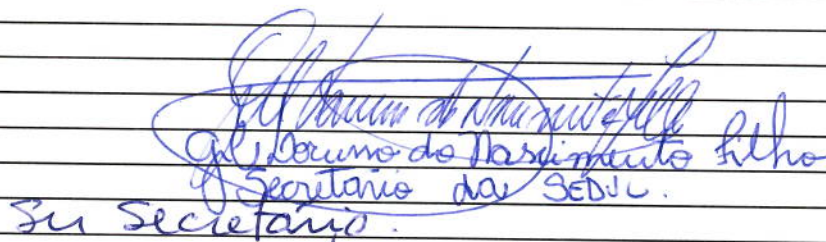 Gil Dorismo do Nascimento Filho
Secretário da SEDJL.
Su Secretário.